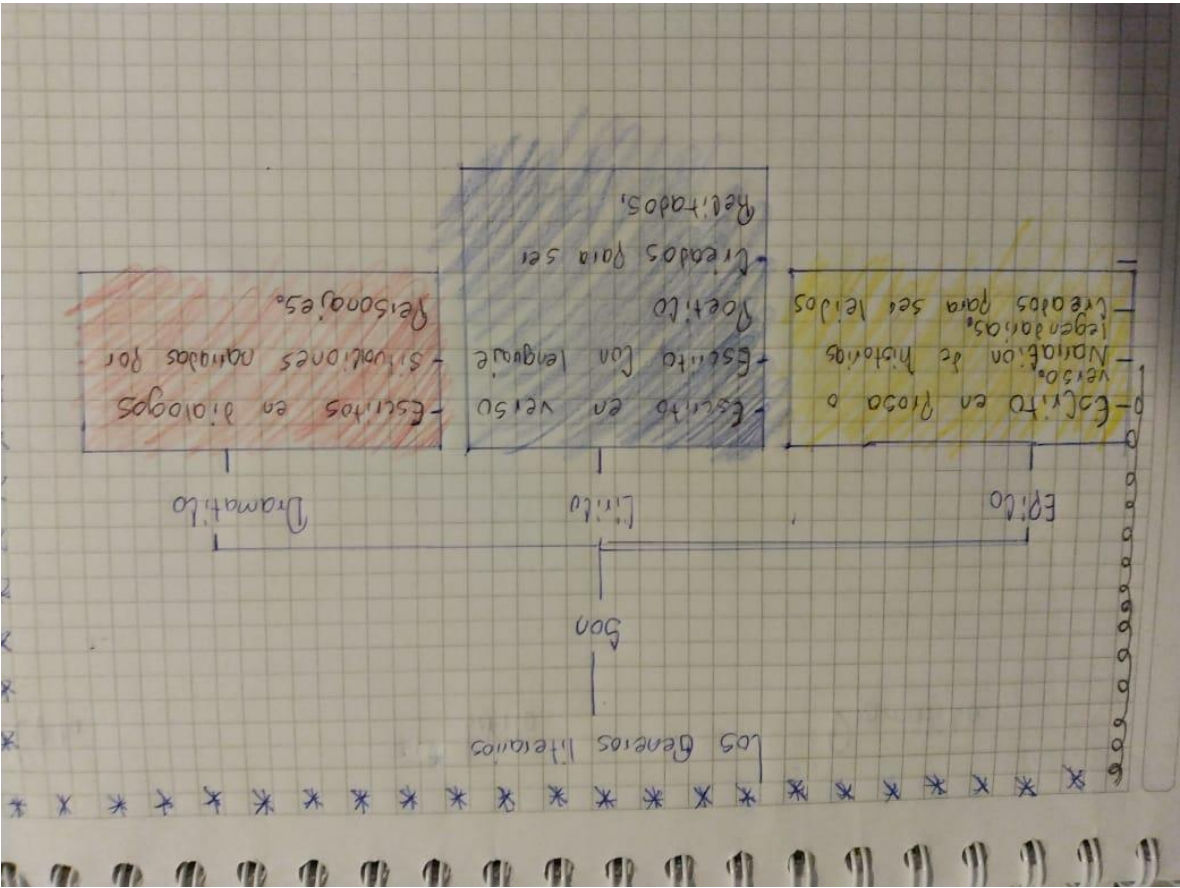 Los Generos literarios
Son
Epico
Lirico
Dramatico
-Escrito en Prosa o
verso.
- Narracion de historias
legendarias.
- Creados para ser leidos
-
-Escrito en verso
-Escrito con lenguaje
Poetico
-Creados para ser
Recitados.
-Escritos en dialogos
- situaciones narradas por
Personajes.